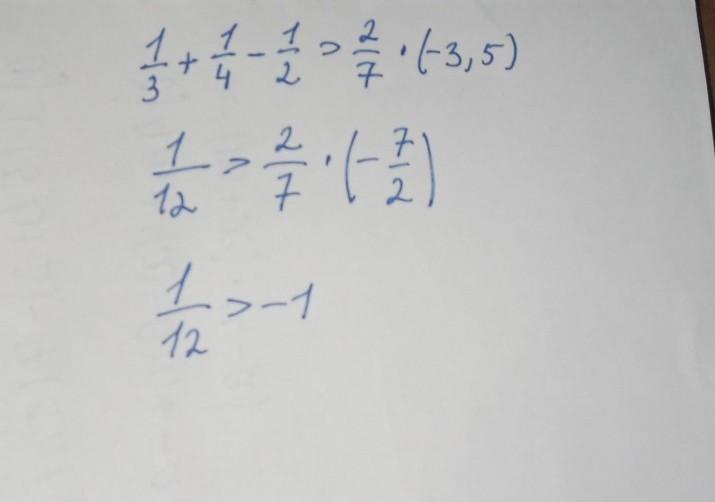 1/3 + 1/4 - 1/2 > 2/7 · (-3,5)
1/12 > 2/7 · (-7/2)
1/12 > -1